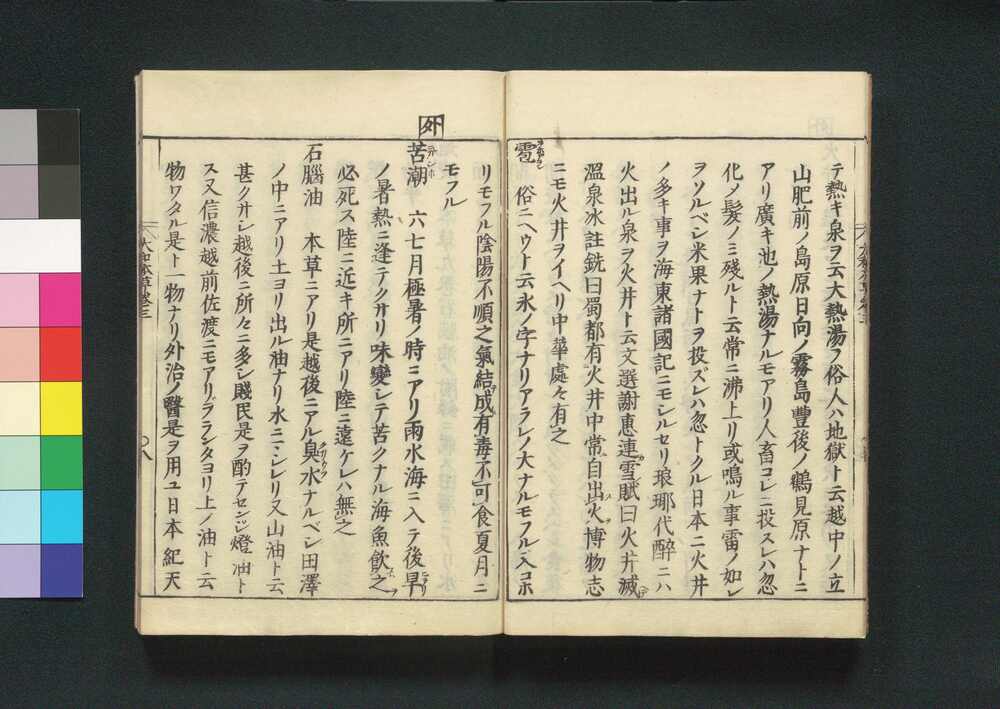 テ熱キ泉ヲ云大熱湯ヲ俗人ハ地獄ト云越中ノ立
山肥前ノ島原日向ノ霧島豐後ノ鶴見原ナトニ
アリ廣キ池ノ熱湯ナルモアリ人畜コレニ投スレハ忽
化ノ髪ノミ残ルト云常ニ沸上リ或鳴ル事雷ノ如シ
ヲソルベシ米果ナトヲ投ズレハ忽トクル日本ニ火井
ノ多キ事ヲ海東諸國記ニモシルセリ琅琊代醉ニハ
火出ル泉ヲ火井ト云文選謝惠連雪賦曰火井滅
溫泉冰註銑曰蜀都有火井中常自出火博物志
ニモ火井ヲイヘリ中華處々有之
雹 俗ニヘウト云氷ノ字ナリアラレノ大ナルモフル又コホ
外
リモフル陰陽不順之氣結成有毒不可食夏月ニ
モフル
苦潮 六七月極暑ノ時ニアリ雨水海ニ入テ後旱
ノ暑熱ニ逢テクサリ味變シテ苦クナル海魚飲之
必死ス陸ニ近キ所ニアリ陸ニ遠ケレハ無之
石腦油 本草ニアリ是越後ニアル臭水ナルベシ田澤
ノ中ニアリ土ヨリ出ル油ナリ水ニマシレリ又山油ト云
甚クサシ越後ニ所々ニ多シ賤民是ヲ酌テセンジ燈油ト
ス又信濃越前佐渡ニモアリヲランタヨリ上ノ油ト云
物ワタル是ト一物ナリ外治ノ醫是ヲ用ユ日本紀天
大和本草卷三
〇八